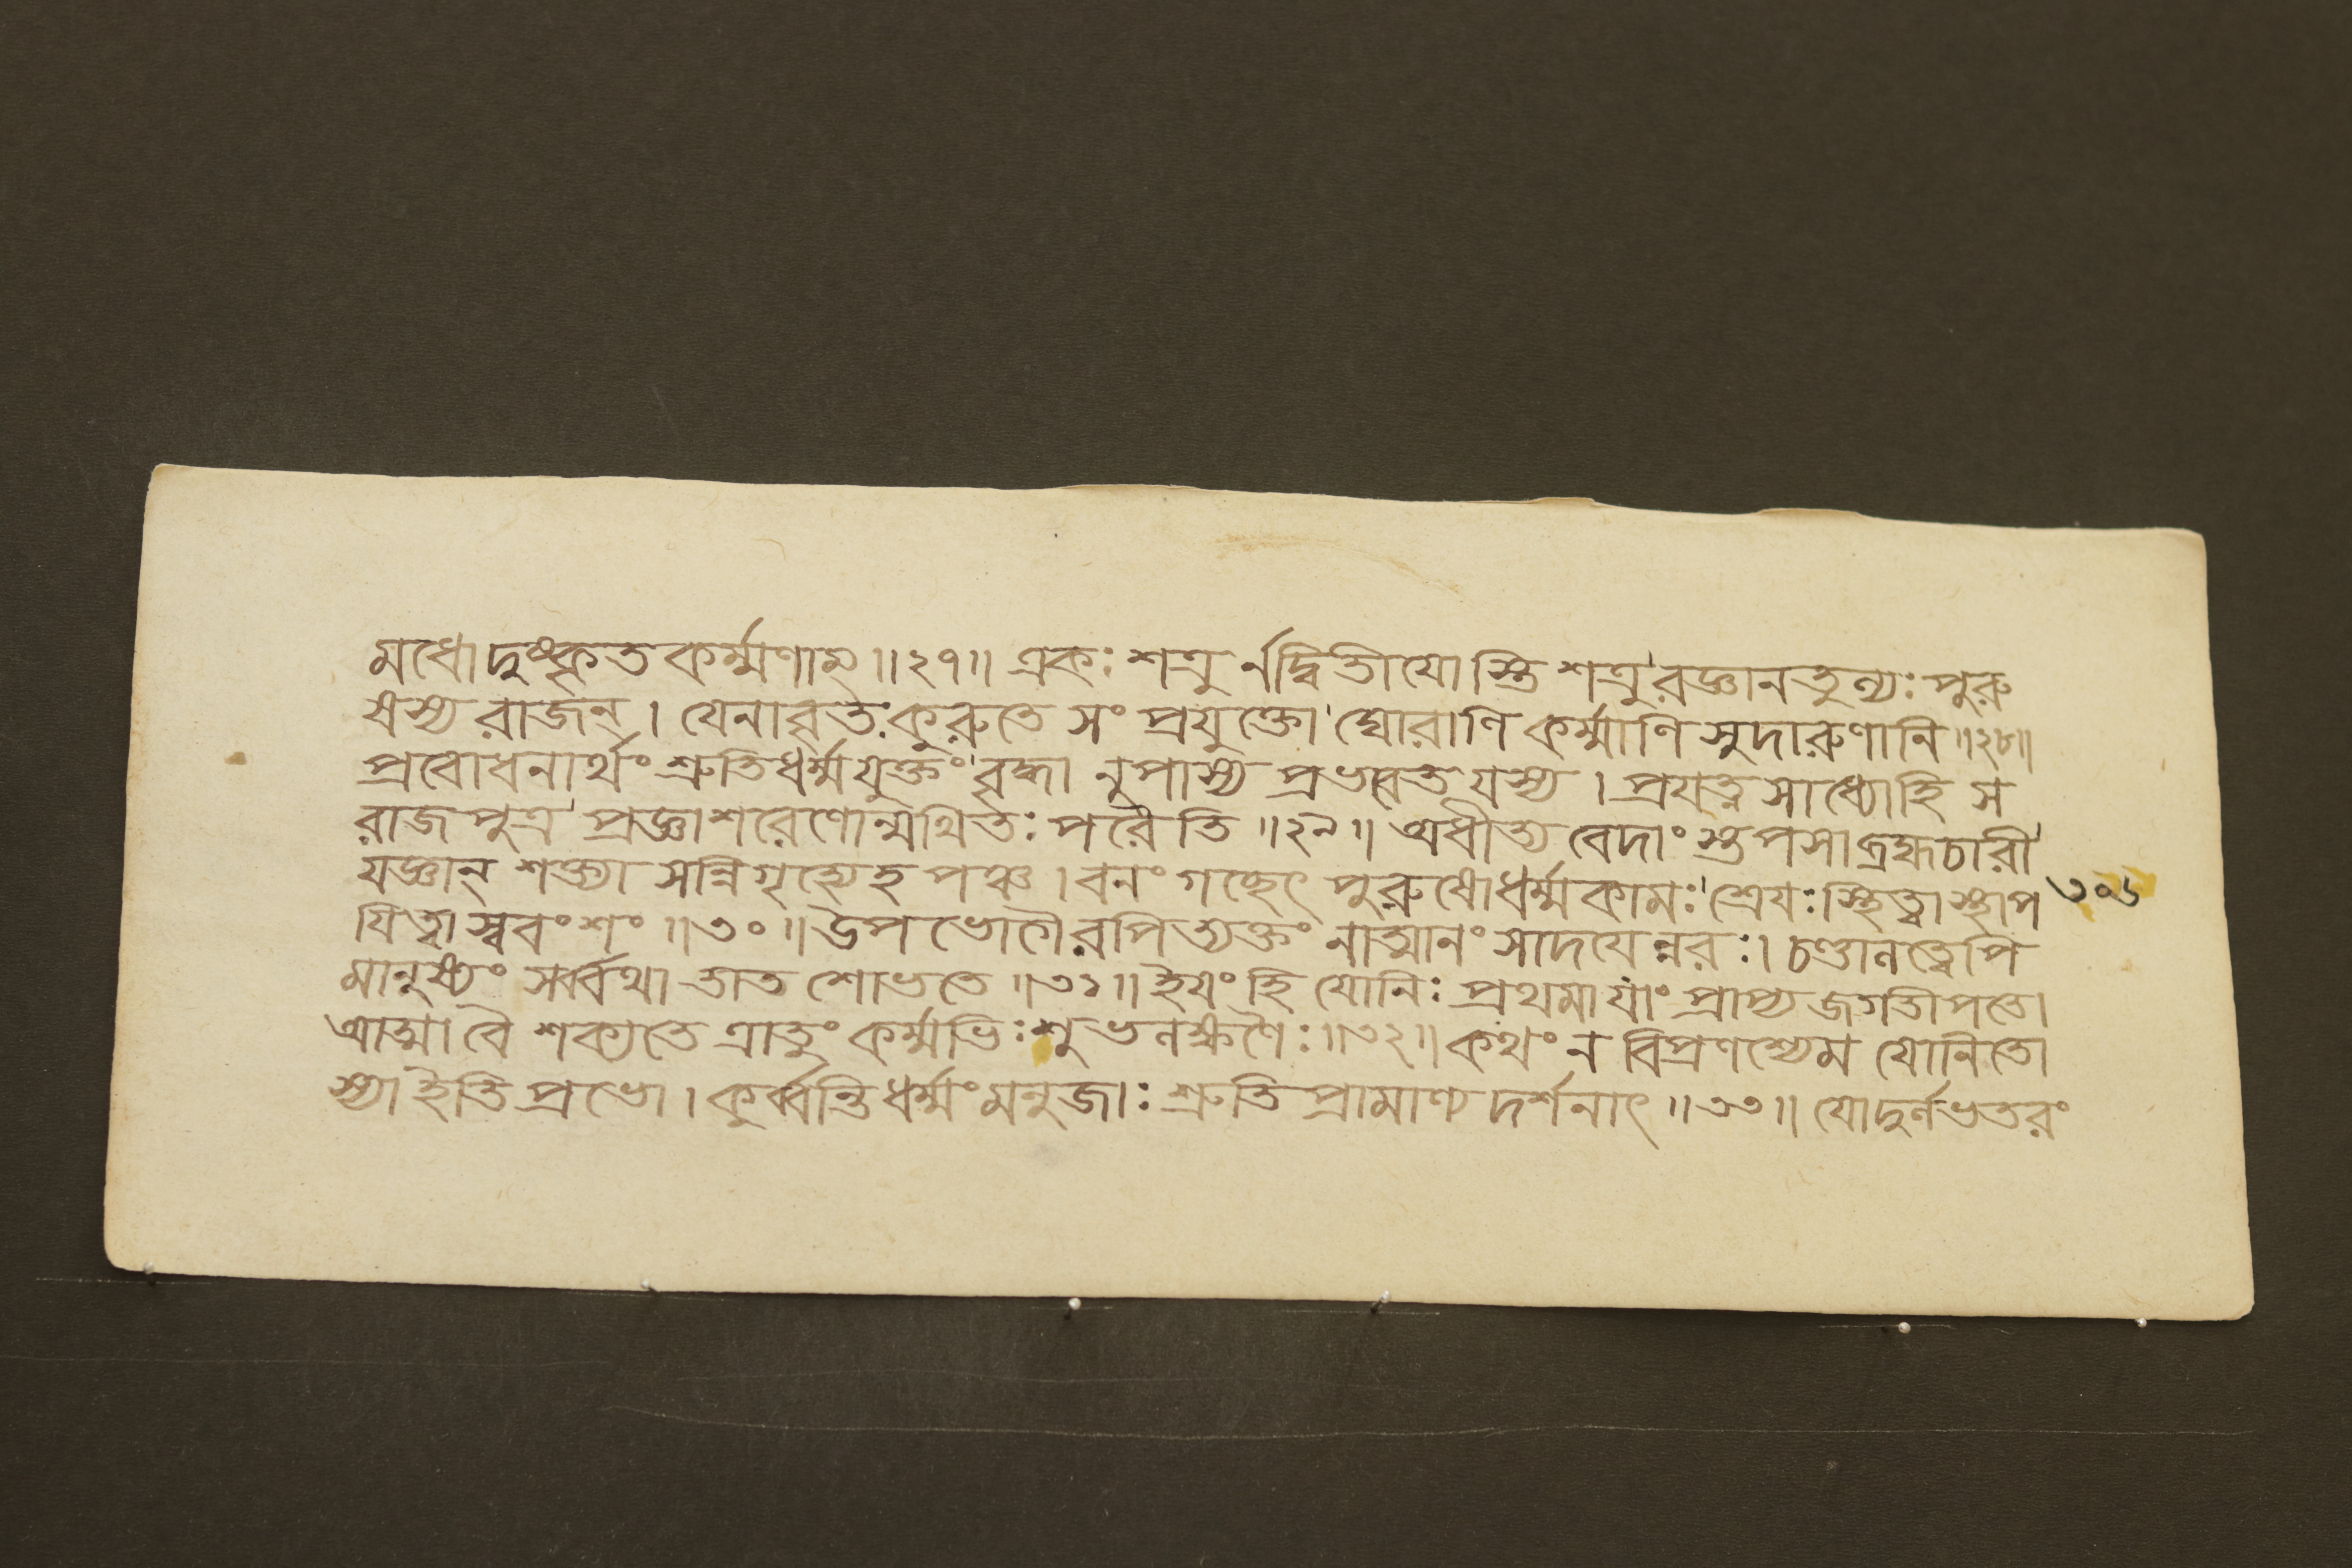 মধো দুষ্কৃত কর্ম্মণাম্ ॥ ২৭ ॥ একঃ শত্রু র্নদ্বিতীযো স্তি শত্রু'রজ্ঞানতুল্যঃ পুরু
ষস্য রাজন্ । যেনাবৃতঃ কুরুতে সং প্রযুক্তো' ঘোরাণি কর্ম্মাণি সুদারুণানি ॥ ২৮ ॥
প্রবোধনার্থং শ্রুতিধর্ম্মযুক্তং' বৃদ্ধা নুপাস্য প্রভবেত যস্য । প্রযত্ন সাধ্যোহি স
রাজপুত্র' প্রজ্ঞাশরেণোন্মথিতঃ পরৈতি ॥ ২৯ ॥ অধীত্য বেদাং স্তপসা ব্রহ্মচারী'
যজ্ঞান্ শক্ত্যা সন্নিগৃহ্যেহ পঞ্চ । বনং গচ্ছেৎ পুরুষো ধর্ম্মকামঃ' শ্রেযঃ স্থিত্বা স্থাপ
৩০৬
যিত্বা স্ববংশং ॥ ৩০ ॥ উপভোগৈরপি ত্যক্তং নাত্মানং সাদযেন্নরঃ । চণ্ডালত্বেপি
মানুষ্যং সর্ব্বথা তাত শোভতে ॥ ৩১ ॥ ইযং হি যোনিঃ প্রথমা যাং প্রাপ্য জগতীপতে।
আত্মা বৈ শক্যতে ত্রাতুং কর্ম্মভিঃ শুভলক্ষণৈঃ ॥ ৩২ ॥ কথং ন বিপ্রণশ্যেম যোনিতো
স্যা ইতি প্রভো । কুর্ব্বন্তি ধর্ম্মং মনুজাঃ শ্রুতি প্রামাণ্য দর্শনাৎ ॥ ৩৩ ॥ যো দুর্লভতরং